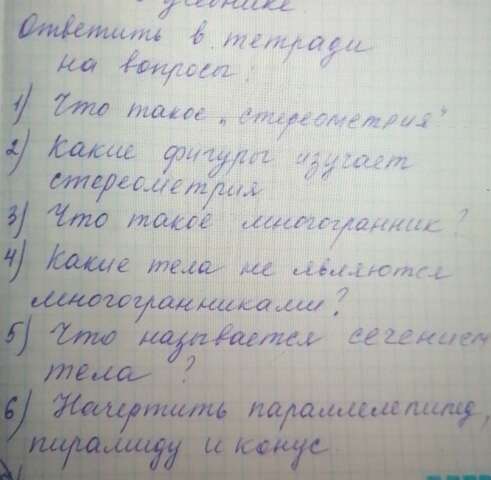 учебнике.
Ответить в тетради
на вопросы:
1) Что такое „стереометрия"
2) Какие фигуры изучает
стереометрия
3) Что такое многогранник?
4) Какие тела не являются
многогранниками?
5) Что называется сечением
тела?
6) Начертить параллелепипед,
пирамиду и конус.